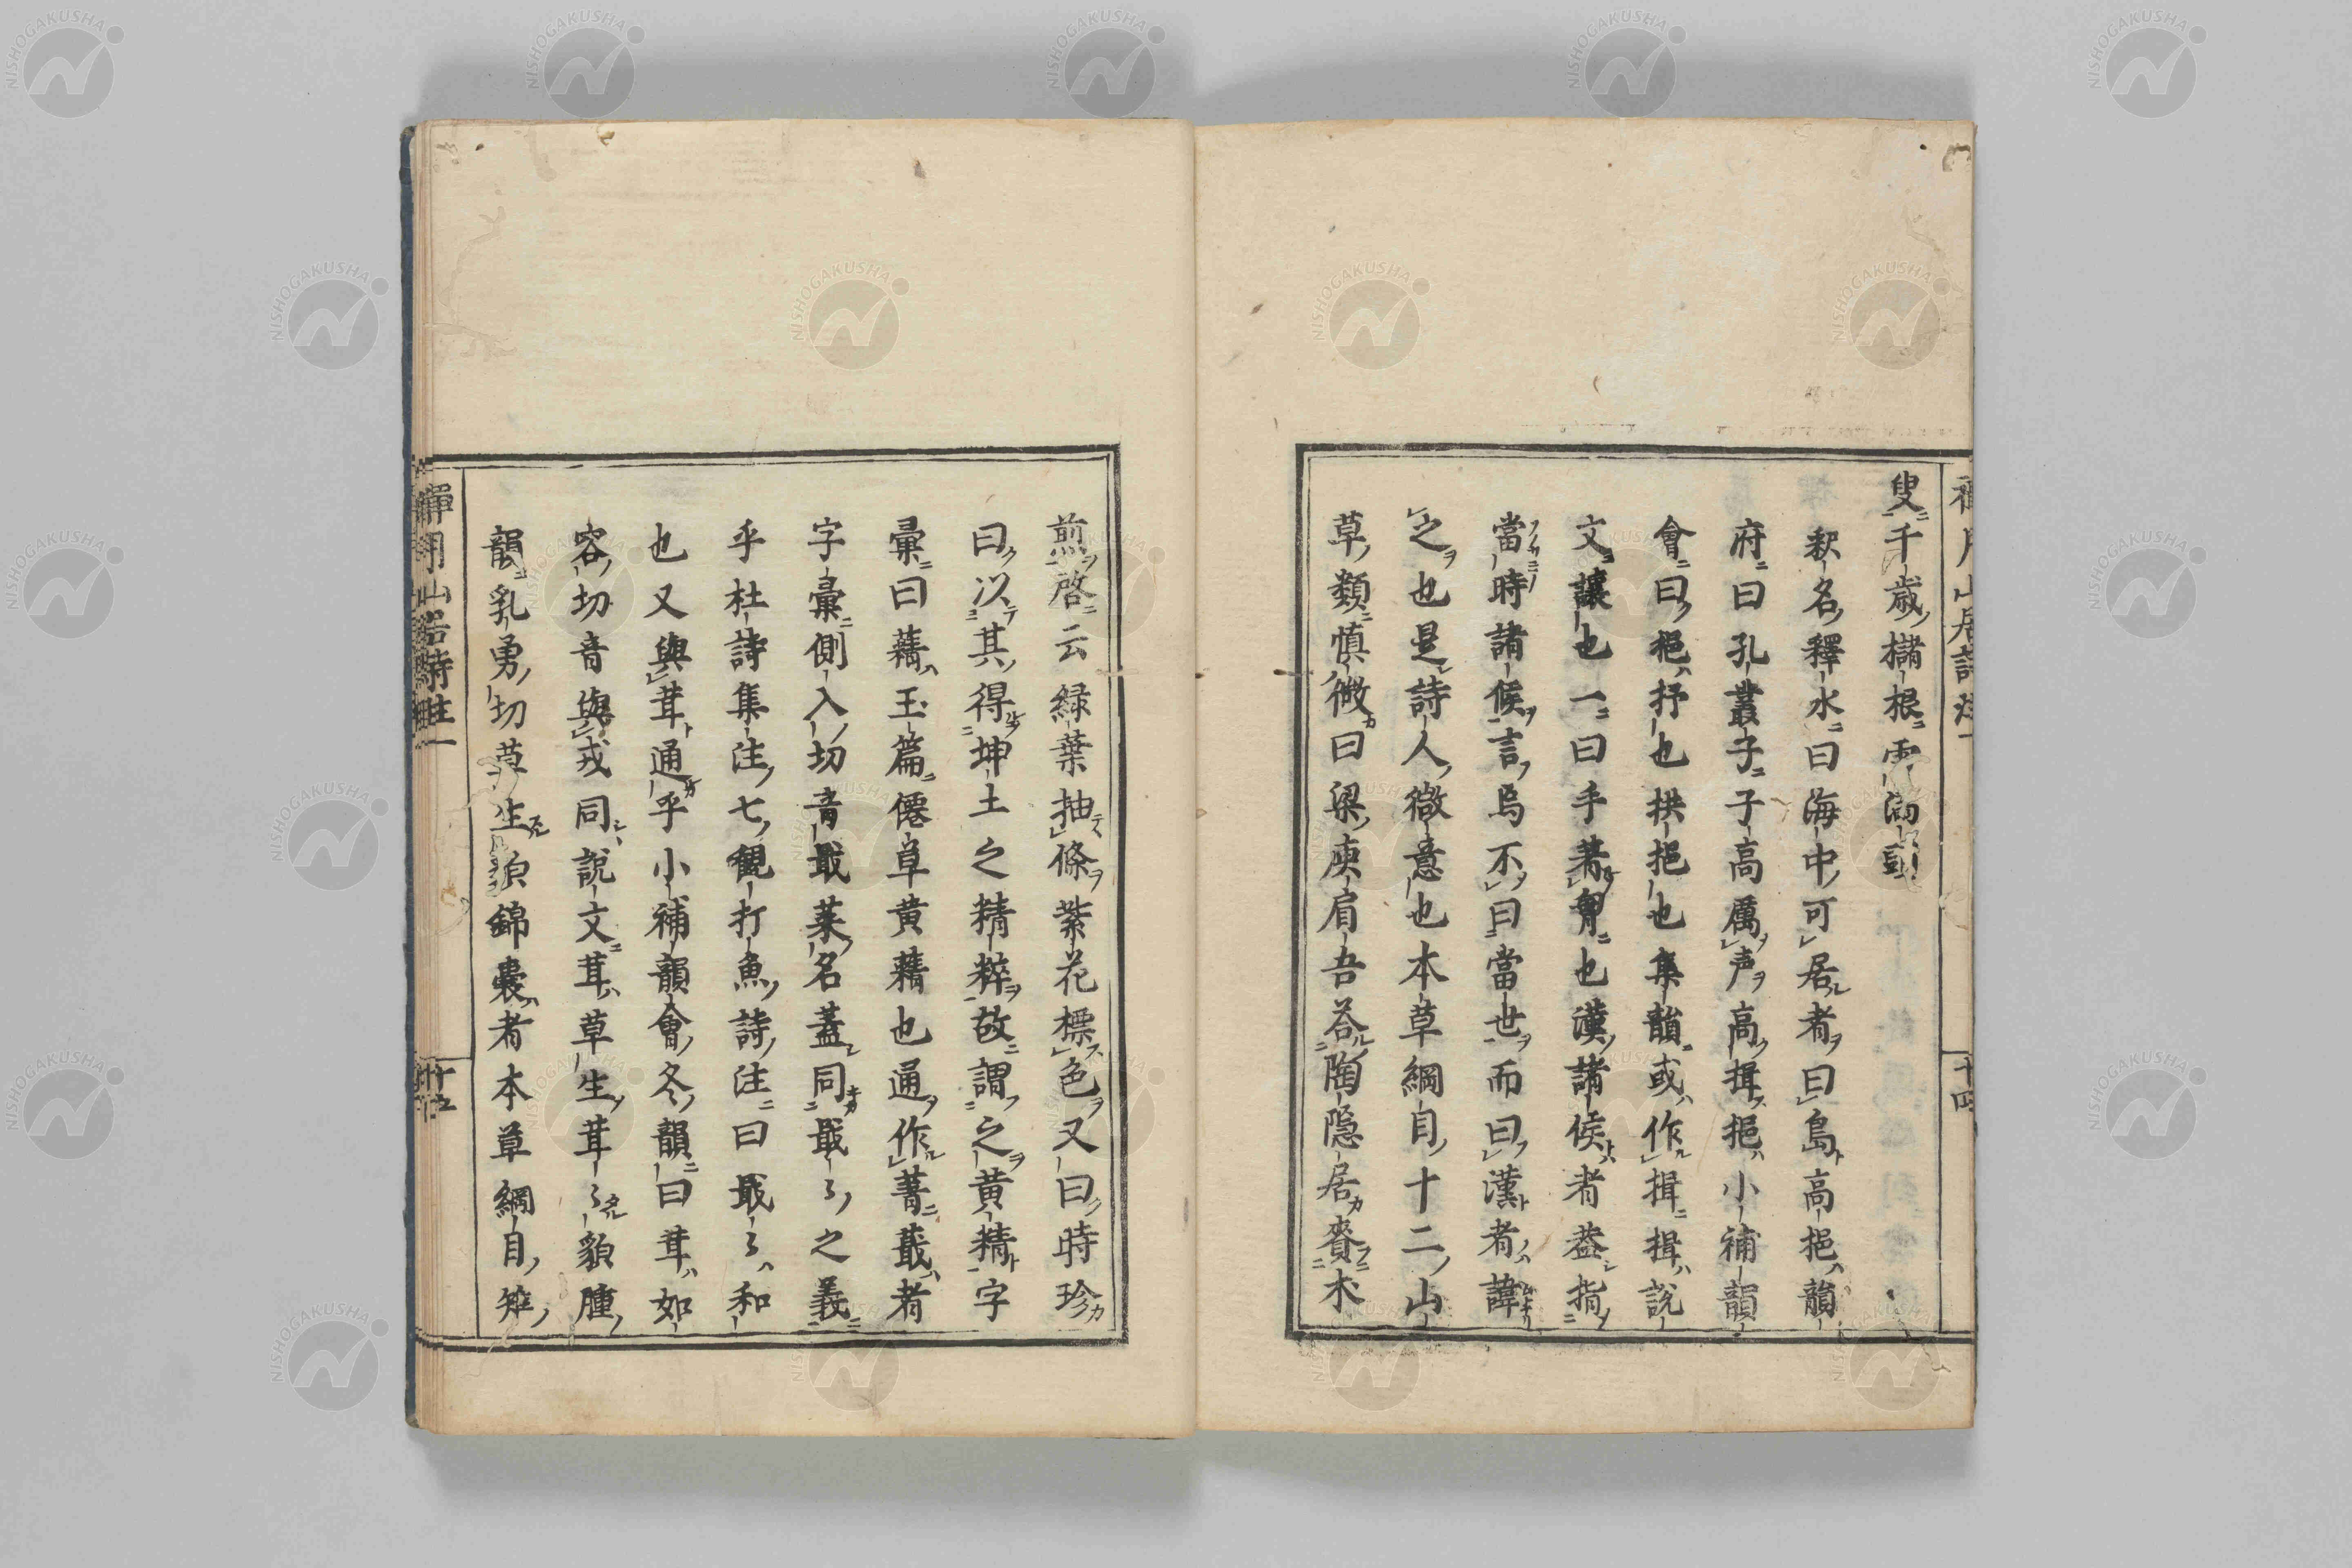 叟千歳櫧根雪滿頭
釈名釋水曰海中可居者曰島高挹韻
府曰孔叢子子高厲声高揖挹小補韻
會曰挹抒也拱挹也集韻或作揖揖説
文讓也一曰手著胷也漢諸侯者盖指
當時諸侯言烏不曰當世而曰漢者諱
之也是詩人微意也本草綱目十二山
草類慎微曰梁庾肩吾荅陶隠居賚朮
煎啓云緑葉抽條紫花標色又曰時珍
曰以其得坤土之精粹故謂之黄精字
彙曰䕒玉篇僊草黄䕒也通作菁蕺者
字彙側入切音戢菜名蓋同戢〻之義
乎杜詩集注七觀打魚詩注曰戢〻和
也又與茸通乎小補韻會冬韻曰茸如
容切音與戎同説文茸草生茸〻貌腫
韻乳勇切草生貌錦嚢者本草綱目雉
禪月山居詩註一
十五
禪月山居詩註一
十四
NISHOGAKUSHA